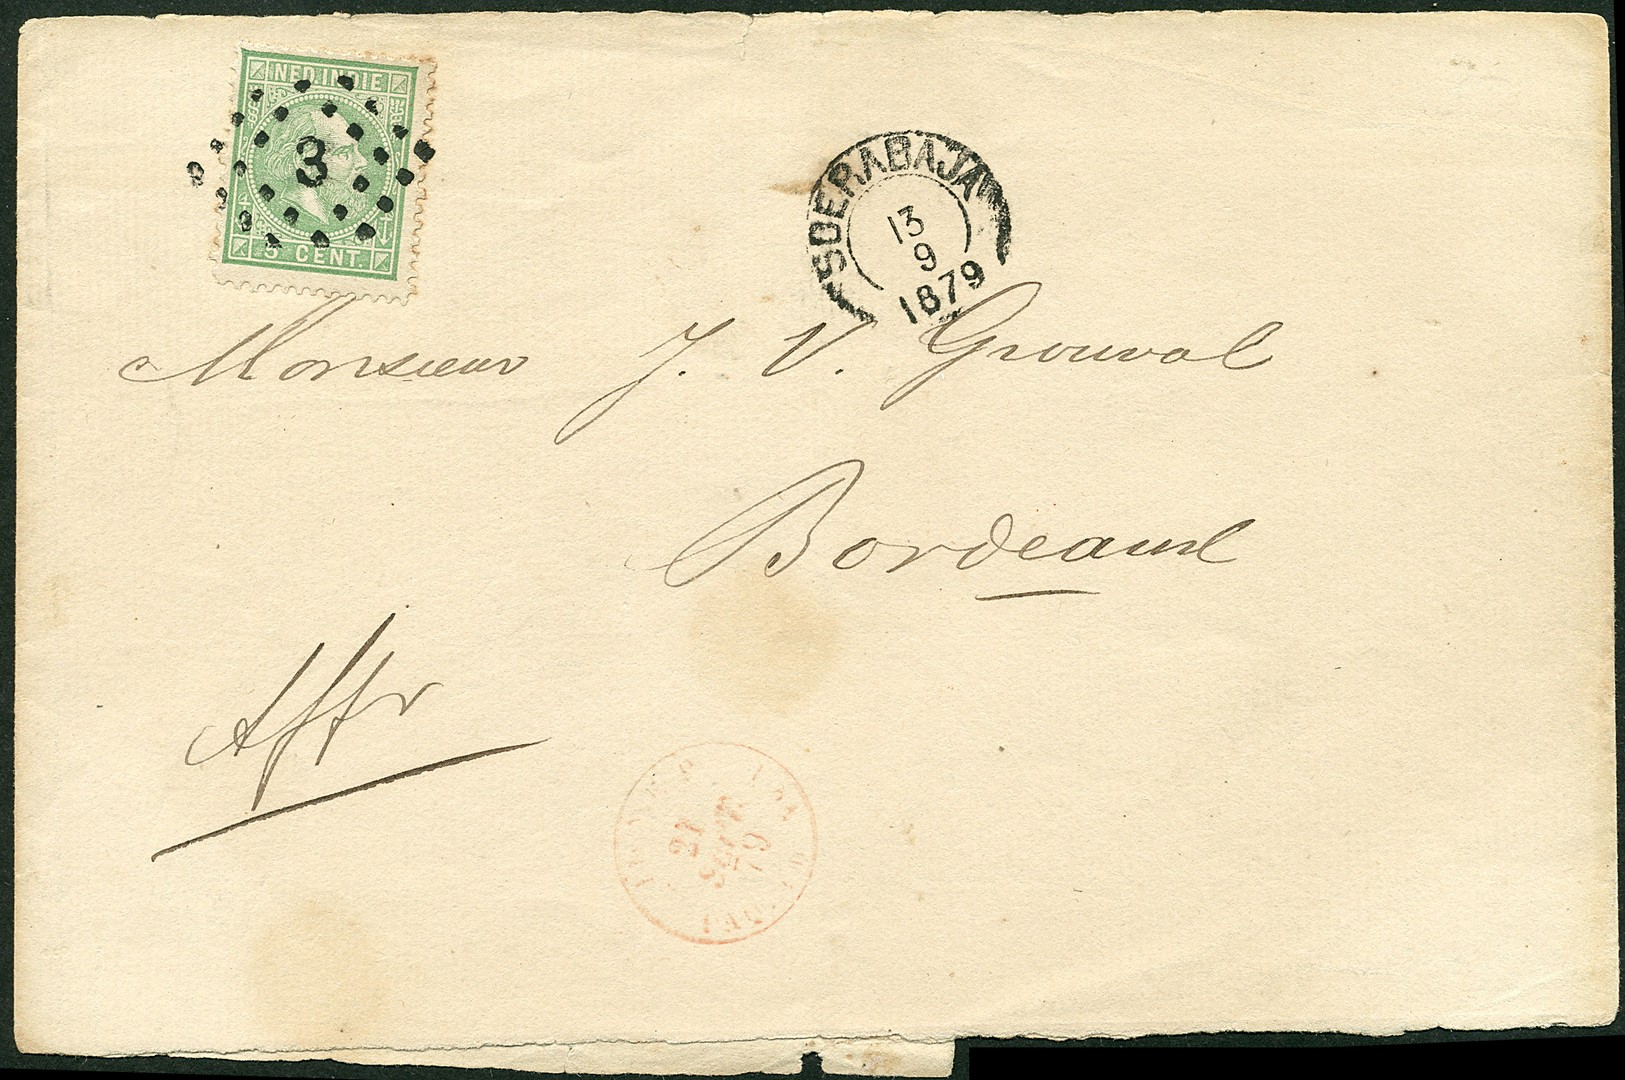 NED. INDIE
3
5 CENT.
SOERABAJA
13
9
1879
Monsieur J. V. Grouval
Bordeaux
Affr
21
79